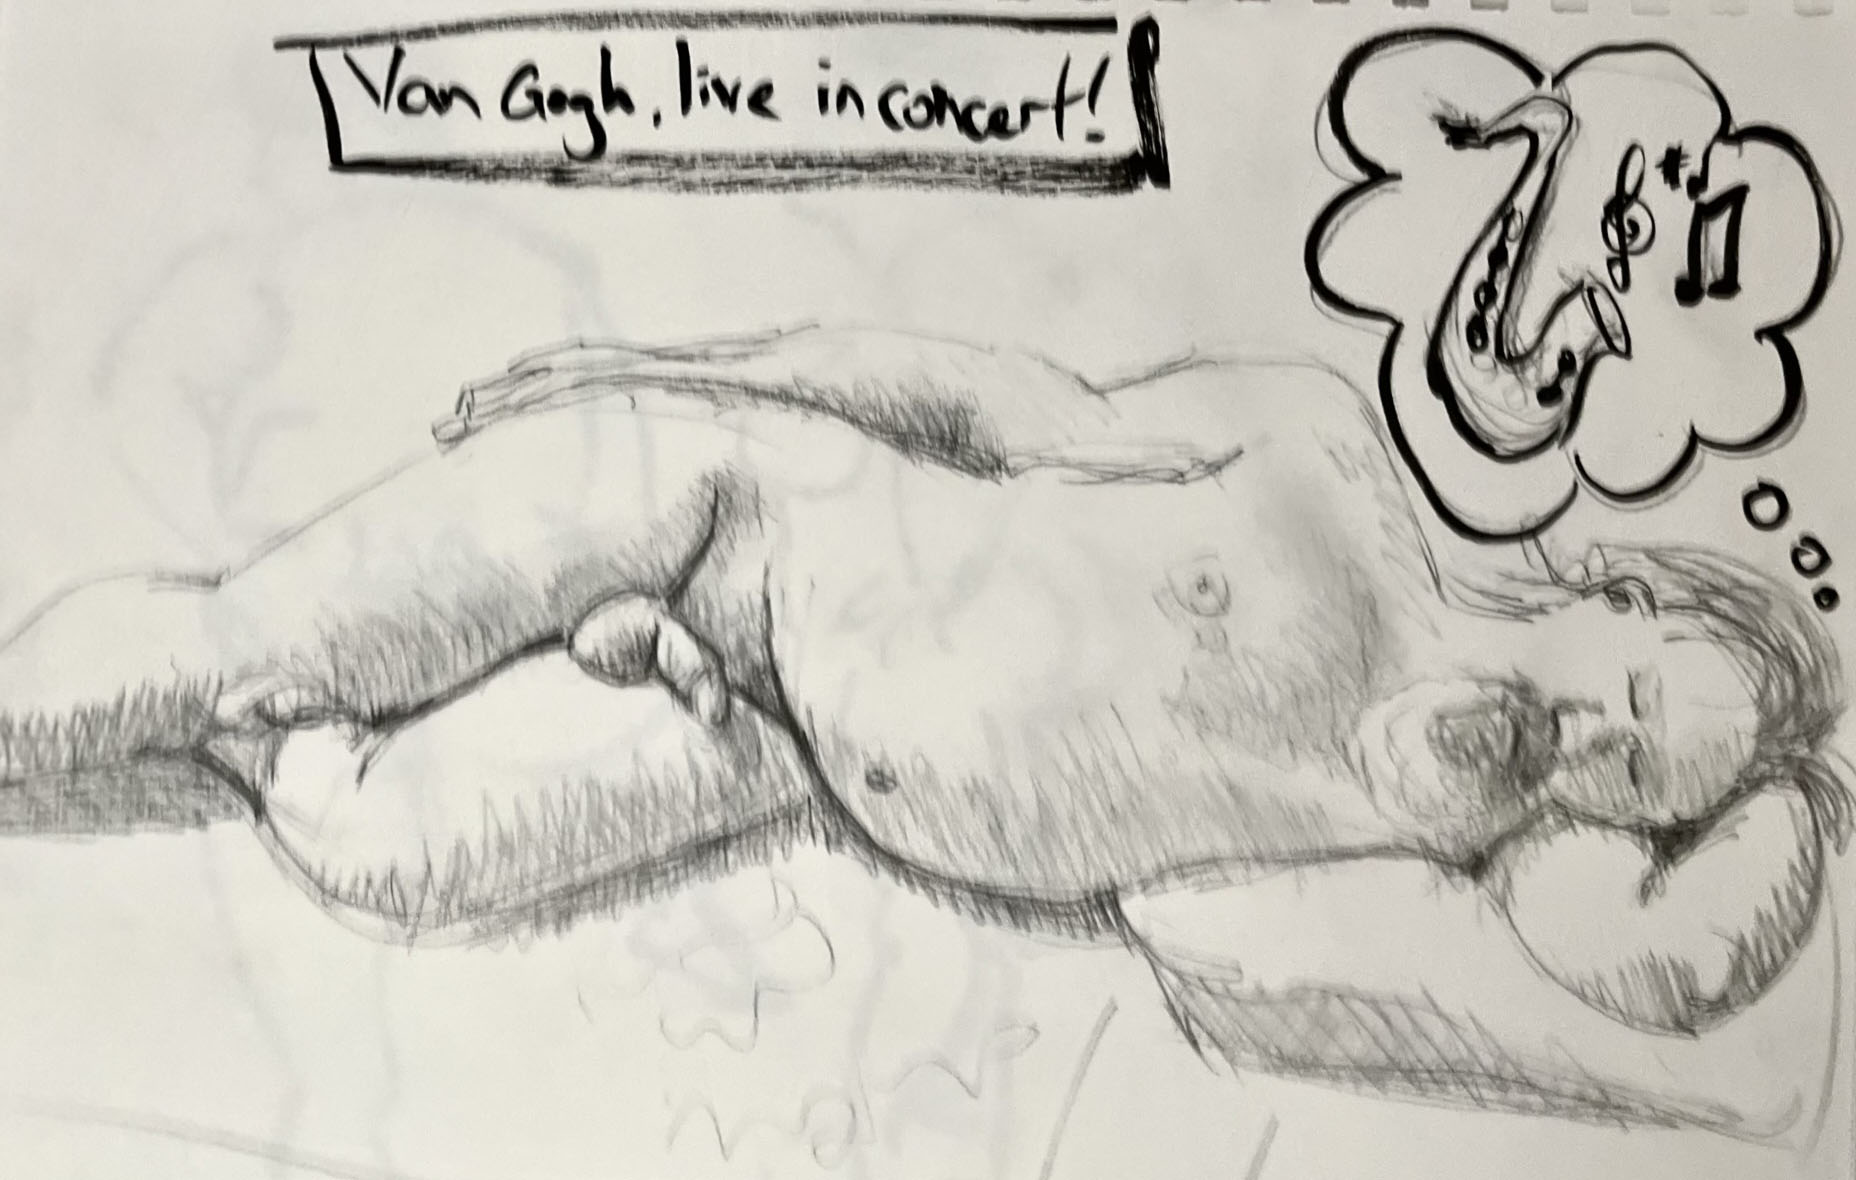 Van Gogh, live in concert!